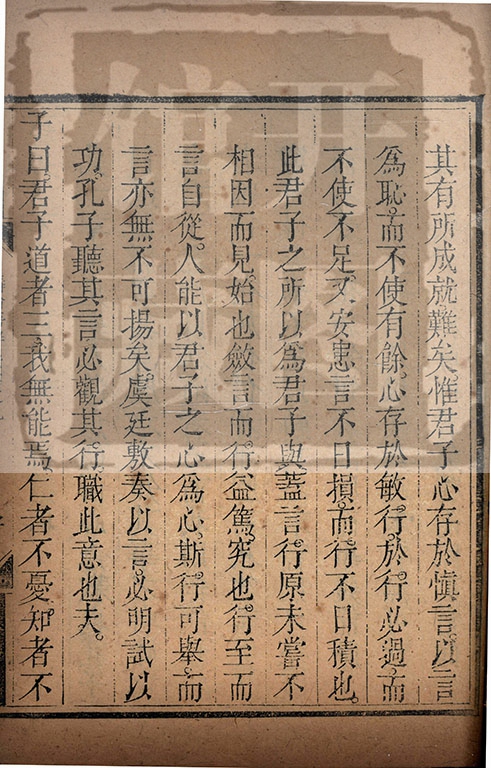 其有所成就難矣惟君子心存於愼言。以言
爲恥。而不使有餘。心存於敏行。於行必過。而
不使不足。又安患言不日損。而行不日積也。
此君子之所以爲君子與。蓋言。行原未嘗不
相因而見。始也斂言而行益篤。究也。行至而
言自從。人能以君子之心爲心。斯行可舉。而
言亦無不可揚矣虞廷敷奏以言。必明試以
功。孔子聽其言必觀其行。職此意也夫。
子曰。君子道者三。我無能焉。仁者不憂。知者不